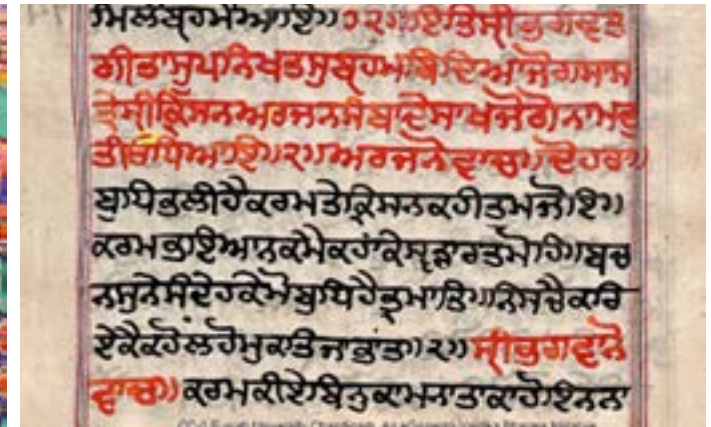 ਮਿਲੇਬ੍ਰਹਮੈਆਇ॥੭੨॥ਇਤਿਸ੍ਰੀਭਗਵਤ
ਗੀਤਾਸੁਪਨਿਖਤਸੁਬ੍ਰਹਮਬਿਦਿਆਜੋਗਸਾਸ
ਤ੍ਰੇਸ੍ਰੀਕ੍ਰਿਸਨਅਰਜਨਸੰਬਾਦੇਸਾਂਖਜੋਗੋਨਾਮਦੁ
ਤੀਓਧਿਆਇ॥੨॥ਅਰਜਨੋਵਾਚ॥ਦੋਹਰਾ॥
ਬੁਧਿਭਲੀਹੈਕਰਮਤੇਕ੍ਰਿਸਨਕਹੀਤੁਮਜੋਇ॥
ਕਰਮਭਾਇਆਨਕਮੈਕਹਾਂਕੇਸ੍ਵਡਾਰਤਮੋਹਿ॥ਬਚ
ਨਸੁਨੇਸੰਦੇਹਕੇਮੋਬੁਧਿਹੈਭ੍ਰਮਾਤਿ॥ਨਿਸਚੈਕਰਿ
ਏਕੈਕਹੋਲਹੋਮੁਕਤਿਜਾਭਾਂਤ॥੨॥ਸ੍ਰੀਭਗਵਾਨੋ
ਵਾਚ॥ਕਰਮਕੀਏਬਿਨੁਕਾਮਨਾਤਾਕਾਹੋਇਨਨਾ